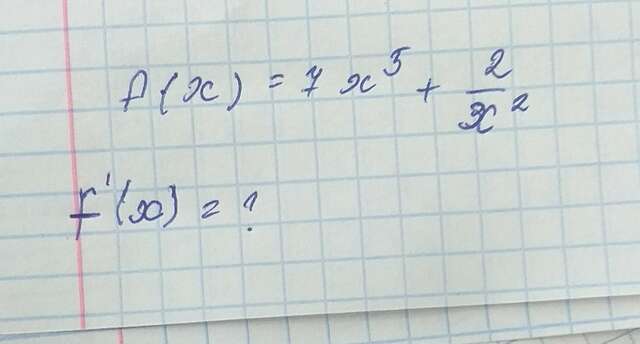 f(x) = 7x⁵ + 2/x²
f'(x) = ?